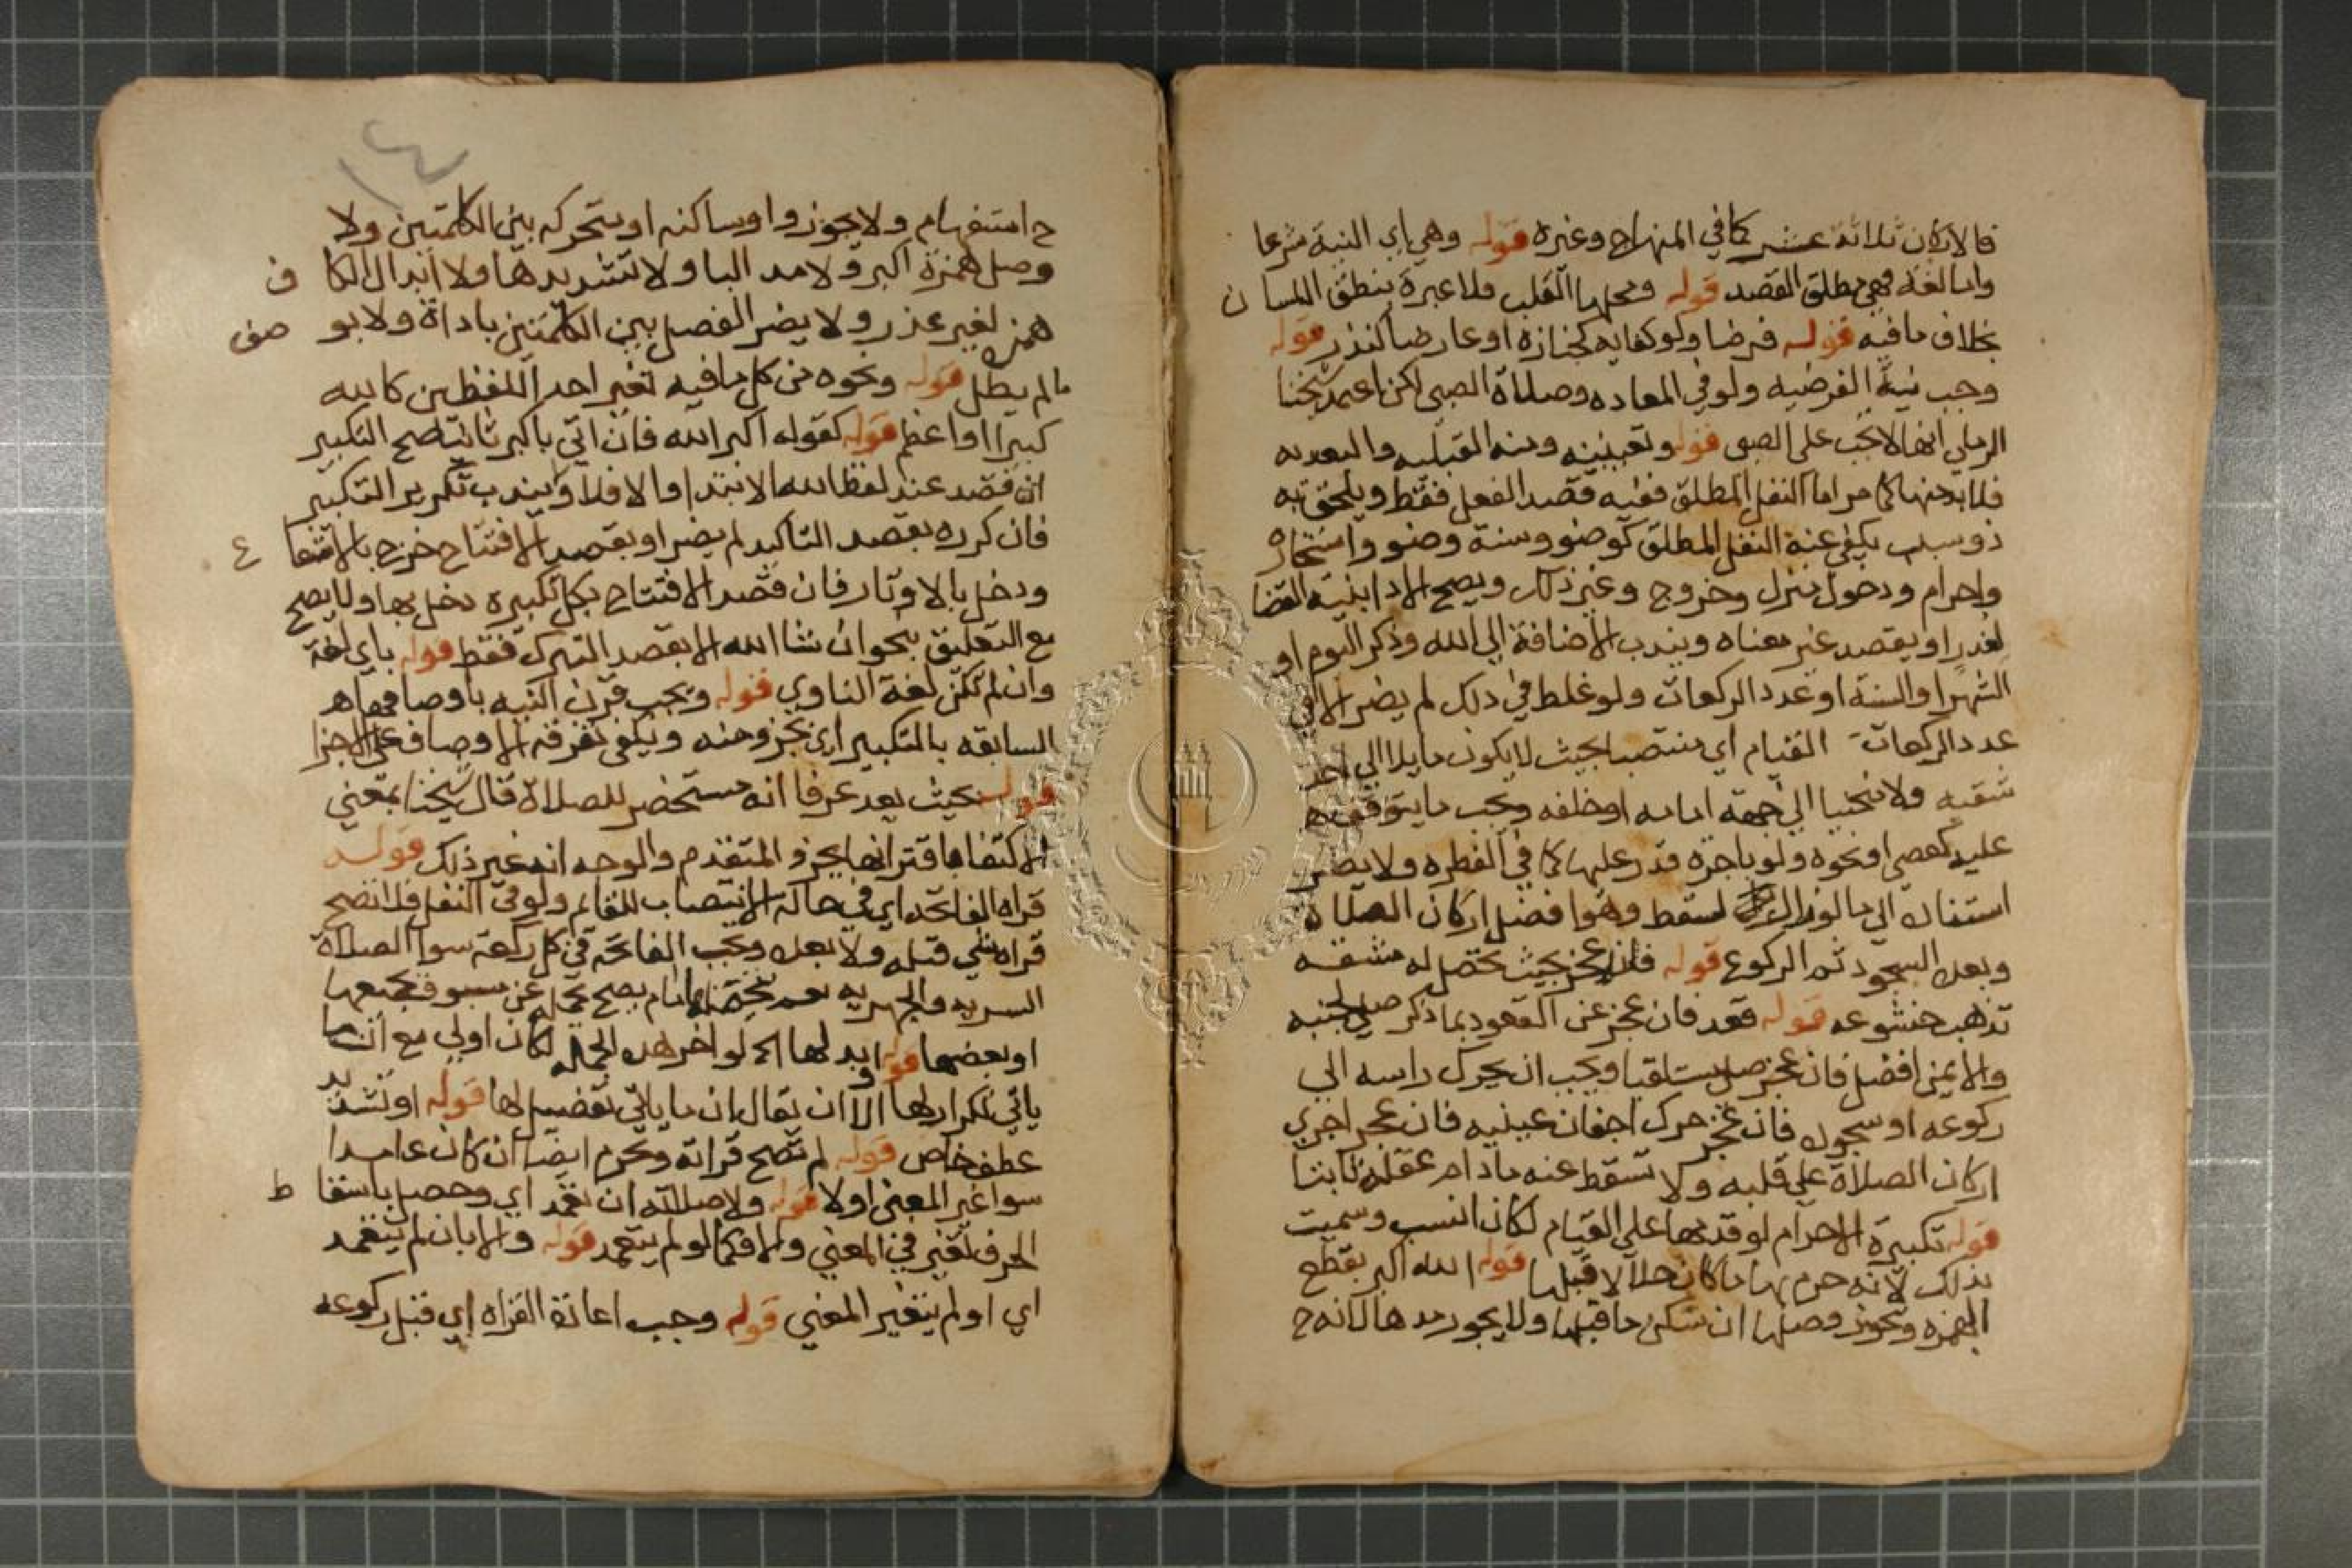 فالاركان ثلاثة عشر كما في المنهاج وغيره قوله وهي اي النية شرعا
واما لغة فهي مطلق القصد قوله ومحلها القلب فلا عبرة بنطق اللسان
بخلاف ما فيه قوله فرضا ولو كفايه كجنازة او عارضا كنذر قوله
وجب نية الفرضيه ولو في المعاده وصلاة الصبي لكن اعتمد شيخنا
الرملي انها لا تجب على الصبي قوله وتعيينه ومنه القبليه والبعديه
فلا بد منها كما مر اما النفل المطلق ففيه قصد الفعل فقط ويلحق به
ذو سبب يكفي عنه النفل المطلق كوضو وسنة وضو واستخاره
واحرام ودخول منزل وخروج وغير ذلك ويصح الادا بنية القضا
لعذر او بقصد غير معناه ويندب الاضافة الى الله وذكر اليوم او
الشهر او السنة او عدد الركعات ولو غلط في ذلك لم يضر الا في
عدد الركعات القيام اي منتصبا بحيث لا يكون مايلا الي احد
شقيه ولا منحنيا الي جهة امامه او خلفه ويجب ما يتوقف
عليه كعصي او نحوه ولو باجرة قدر عليها كما في الفطره ولا يضر
استناد الي ما لو زال لسقط وهو افضل اركان الصلاة
وبعده السجود ثم الركوع قوله فان عجز بحيث تحصل له مشقه
تذهب خشوعه قوله قعد فان عجز عن القعود بما ذكر صلى لجنبه
والايمن افضل فان عجز صلى مستلقيا ويجب ان يحرك راسه الي
ركوعه او سجوده فان عجز حرك اجفان عينيه فان عجز اجري
اركان الصلاة علي قلبه ولا تسقط عنه مادام عقله ثابتا
قوله تكبيرة الاحرام لو قدمها على القيام لكان انسب وسميت
بذلك لانه حرم بها ما كان حلالا قبلها قوله الله اكبر بقطع
الهمزه ويجوز وصلها ان سكن ما قبلها ولا يجوز مدها لانه ح
١٤
ح استفهام ولا يجوز واو ساكنه او متحركه بين الكلمتين ولا
وصل همزة اكبر ولا مد البا ولا تشديدها ولا ابدال الكاف
همزه لغير عذر ولا يضر الفصل بين الكلمتين باداة ولا بوصف
مالم يطل قوله ونحوه من كل ما فيه تغير احد اللفظين كالله
كبيرا او اعظم قوله كقوله اكبر الله فان اتي باكبر ثانيا صح التكبير
ان قصد عند لفظ الله الابتدا والا فلا ويندب تكرير التكبير
فان كرره بقصد التاكيد لم يضر او بقصد الافتتاح خرج بالاشفاع
ودخل بالاوتار فان قصد الافتتاح بكل تكبيره دخل بها ولا يصح
مع التعليق بنحو ان شا الله الا بقصد التبرك فقط قوله باي لغة
وان لم تكن لغة الناوي قوله ويجب قرن النيه باوصافها
السابقه بالتكبير اي بجزو منه ويكفي تفرقة الاوصاف على الاجزا
قوله بحيث يعد عرفا انه مستحضر للصلاة قال شيخنا بمعني
الاكتفا باقترانها بجزو المتقدم والوجه انه غير ذلك قوله
قراه الفاتحه اي في حالة الانتصاب للقايم ولو في النفل فلا تصح
قراه شي قبله ولا بعده وتجب الفاتحة في كل ركعة سوا الصلاة
السريه والجهريه امام يصح تحمله عن مسبوق جميعها
او بعضها قوله او بدلها لو اخر هذه الجمله لكان اولي مع ان ما
ياتي تكرار لها الا ان يقال ان ما ياتي تفصيل لها قوله او تشديد
عطف خاص قوله لم تصح قراته ويحرم ايضا ان كان عامدا
سوا غير المعني اولا قوله ولا صلاته ان تعمد اي وحصل باسقاط
الحرف تغير في المعني والا فكما لو لم يتعمد قوله والا بان لم يتعمد
اي او لم يتغير المعني قوله وجب اعادة القراه اي قبل ركوعه